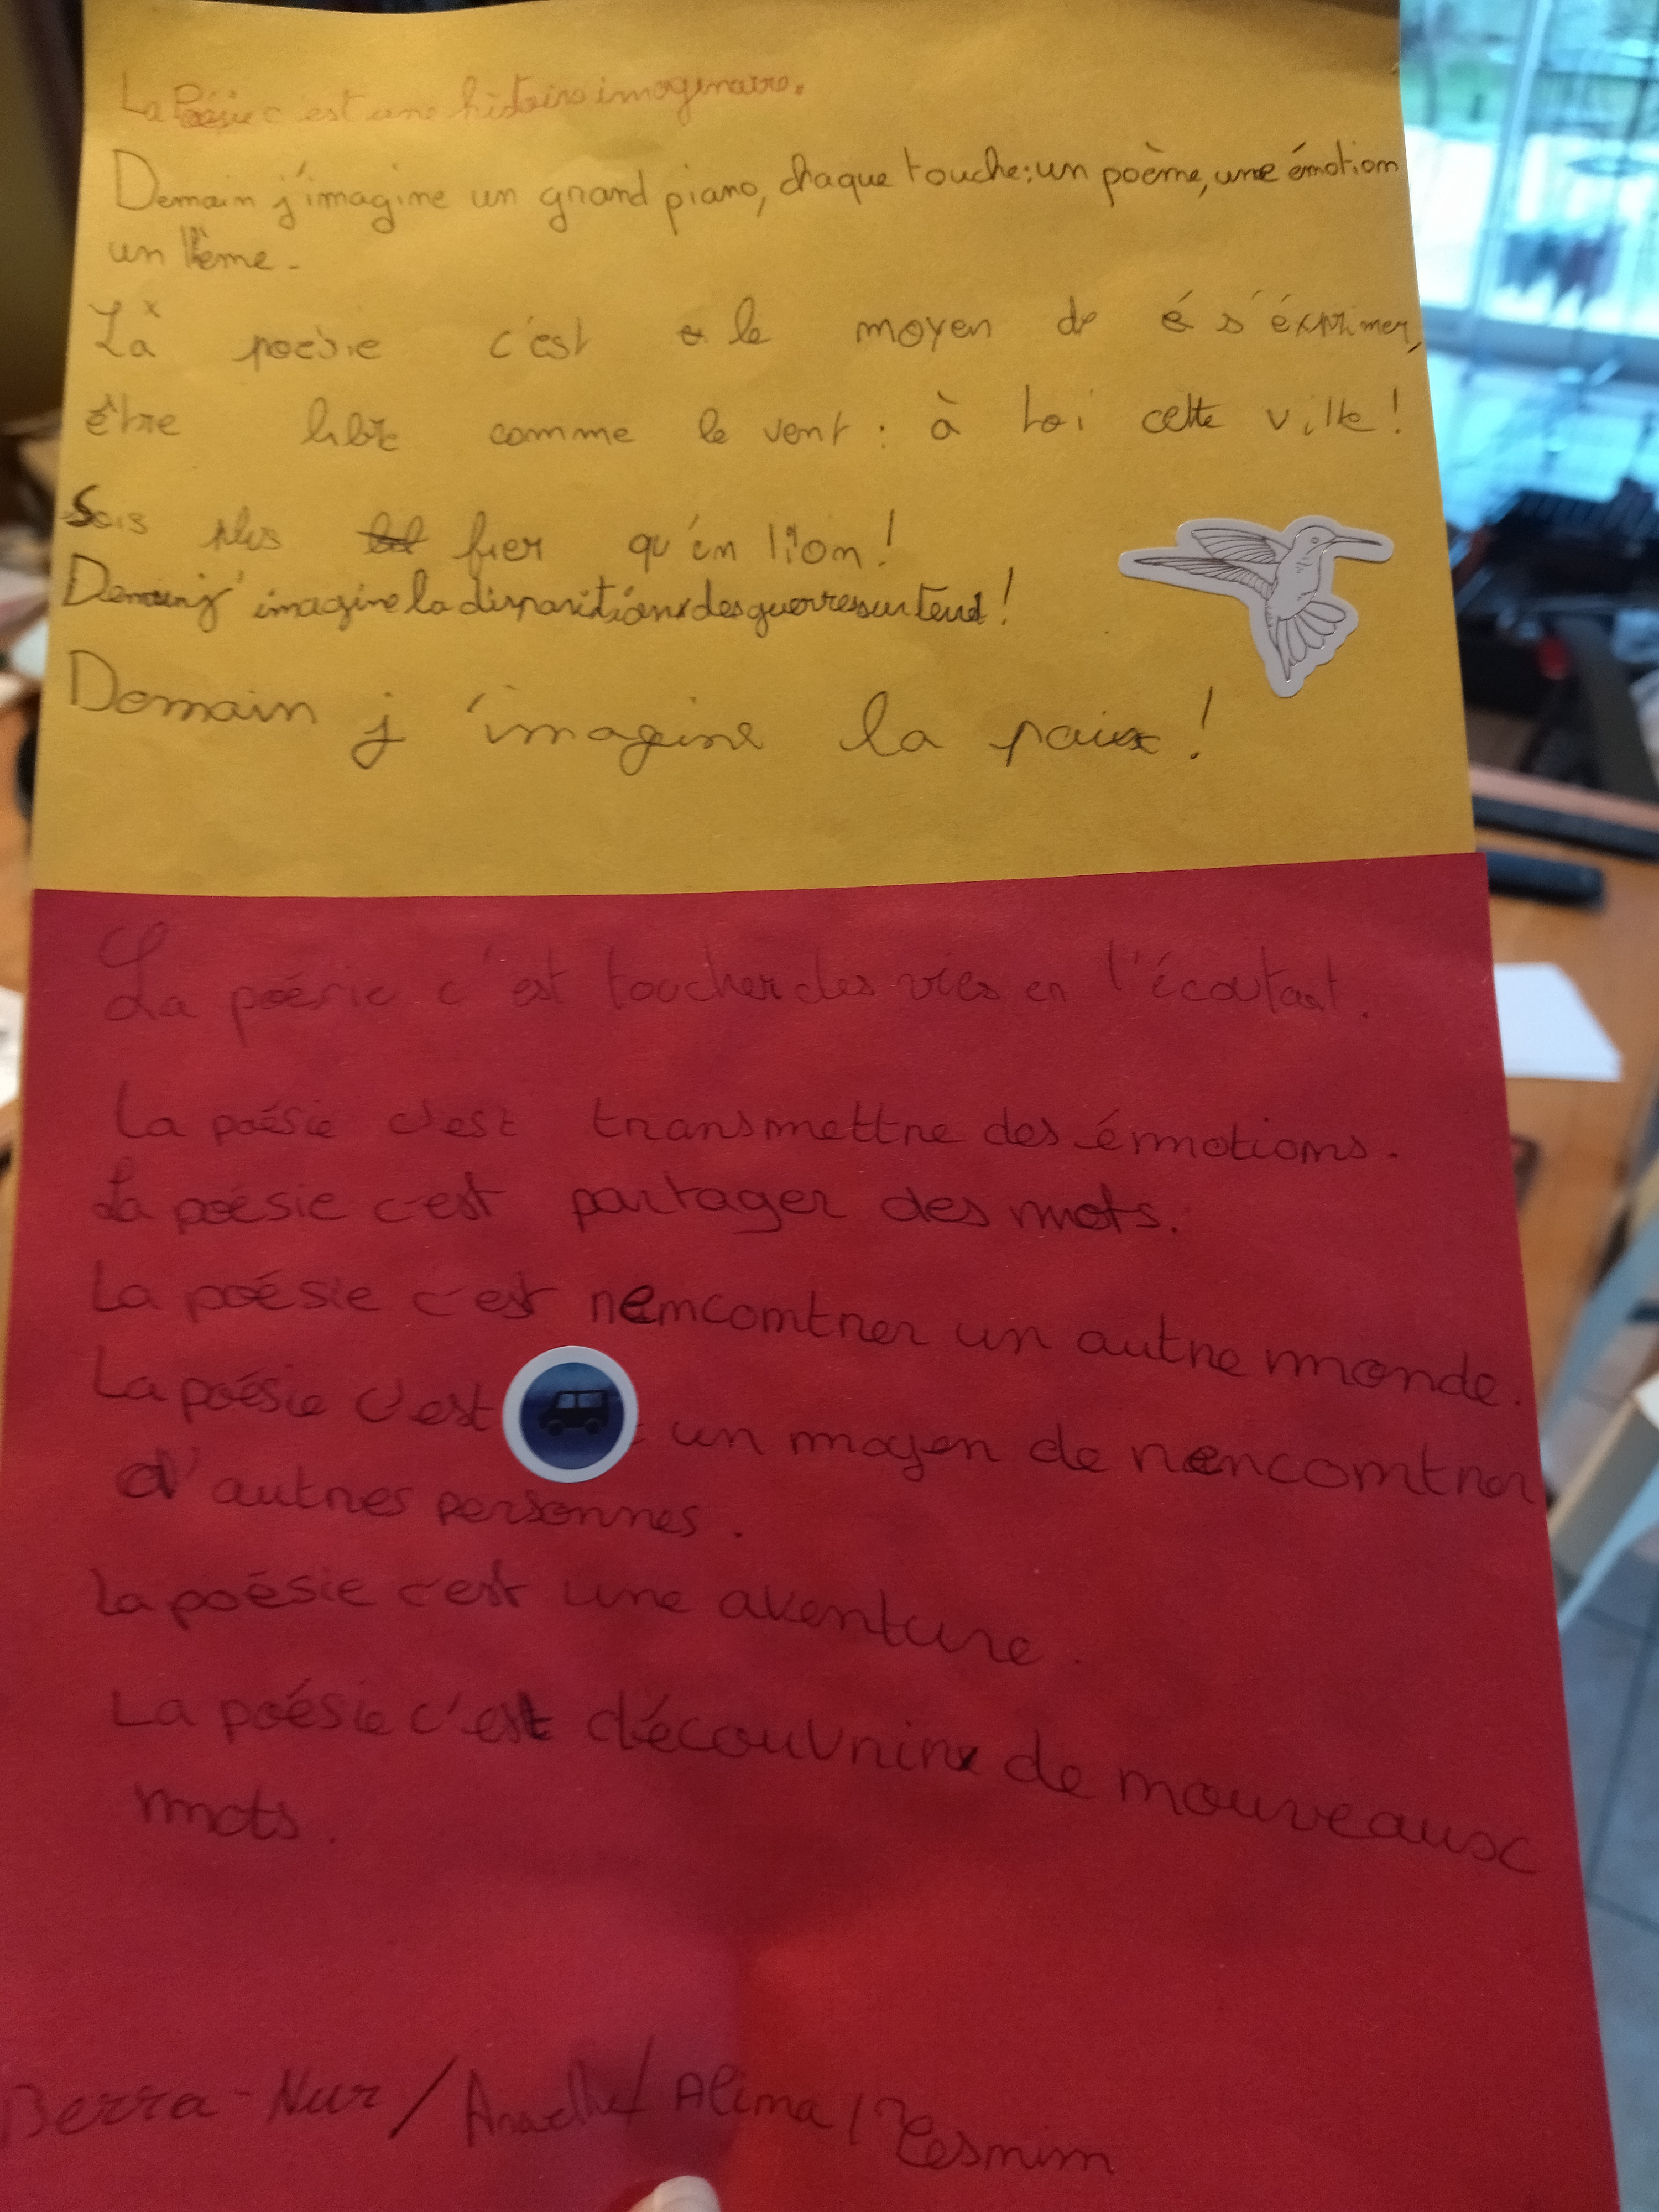 La Poésie c est une histoire imaginaire.
Demain j'imagine un grand piano, chaque touche: un poème, une émotion
un thème.
La poésie c'est le moyen de s'éxprimer,
être libre comme le vent : à toi cette ville !
Sois plus fier qu'un lion !
Demain j'imagine la disparitions des guerres sur
Demain j'imagine la paix !
La poésie c'est toucher des vies en l'écoutant.
La poésie c'est transmettre des émotions.
La poésie c'est partager des mots.
La poésie c'est rencontrer un autre monde.
La poésie c'est un moyen de rencontrer
d'autres personnes.
La poésie c'est une aventure.
La poésie c'est découvrir de nouveaux
mots.
Berra-Nur / Anaelle / Alima / Yesmim